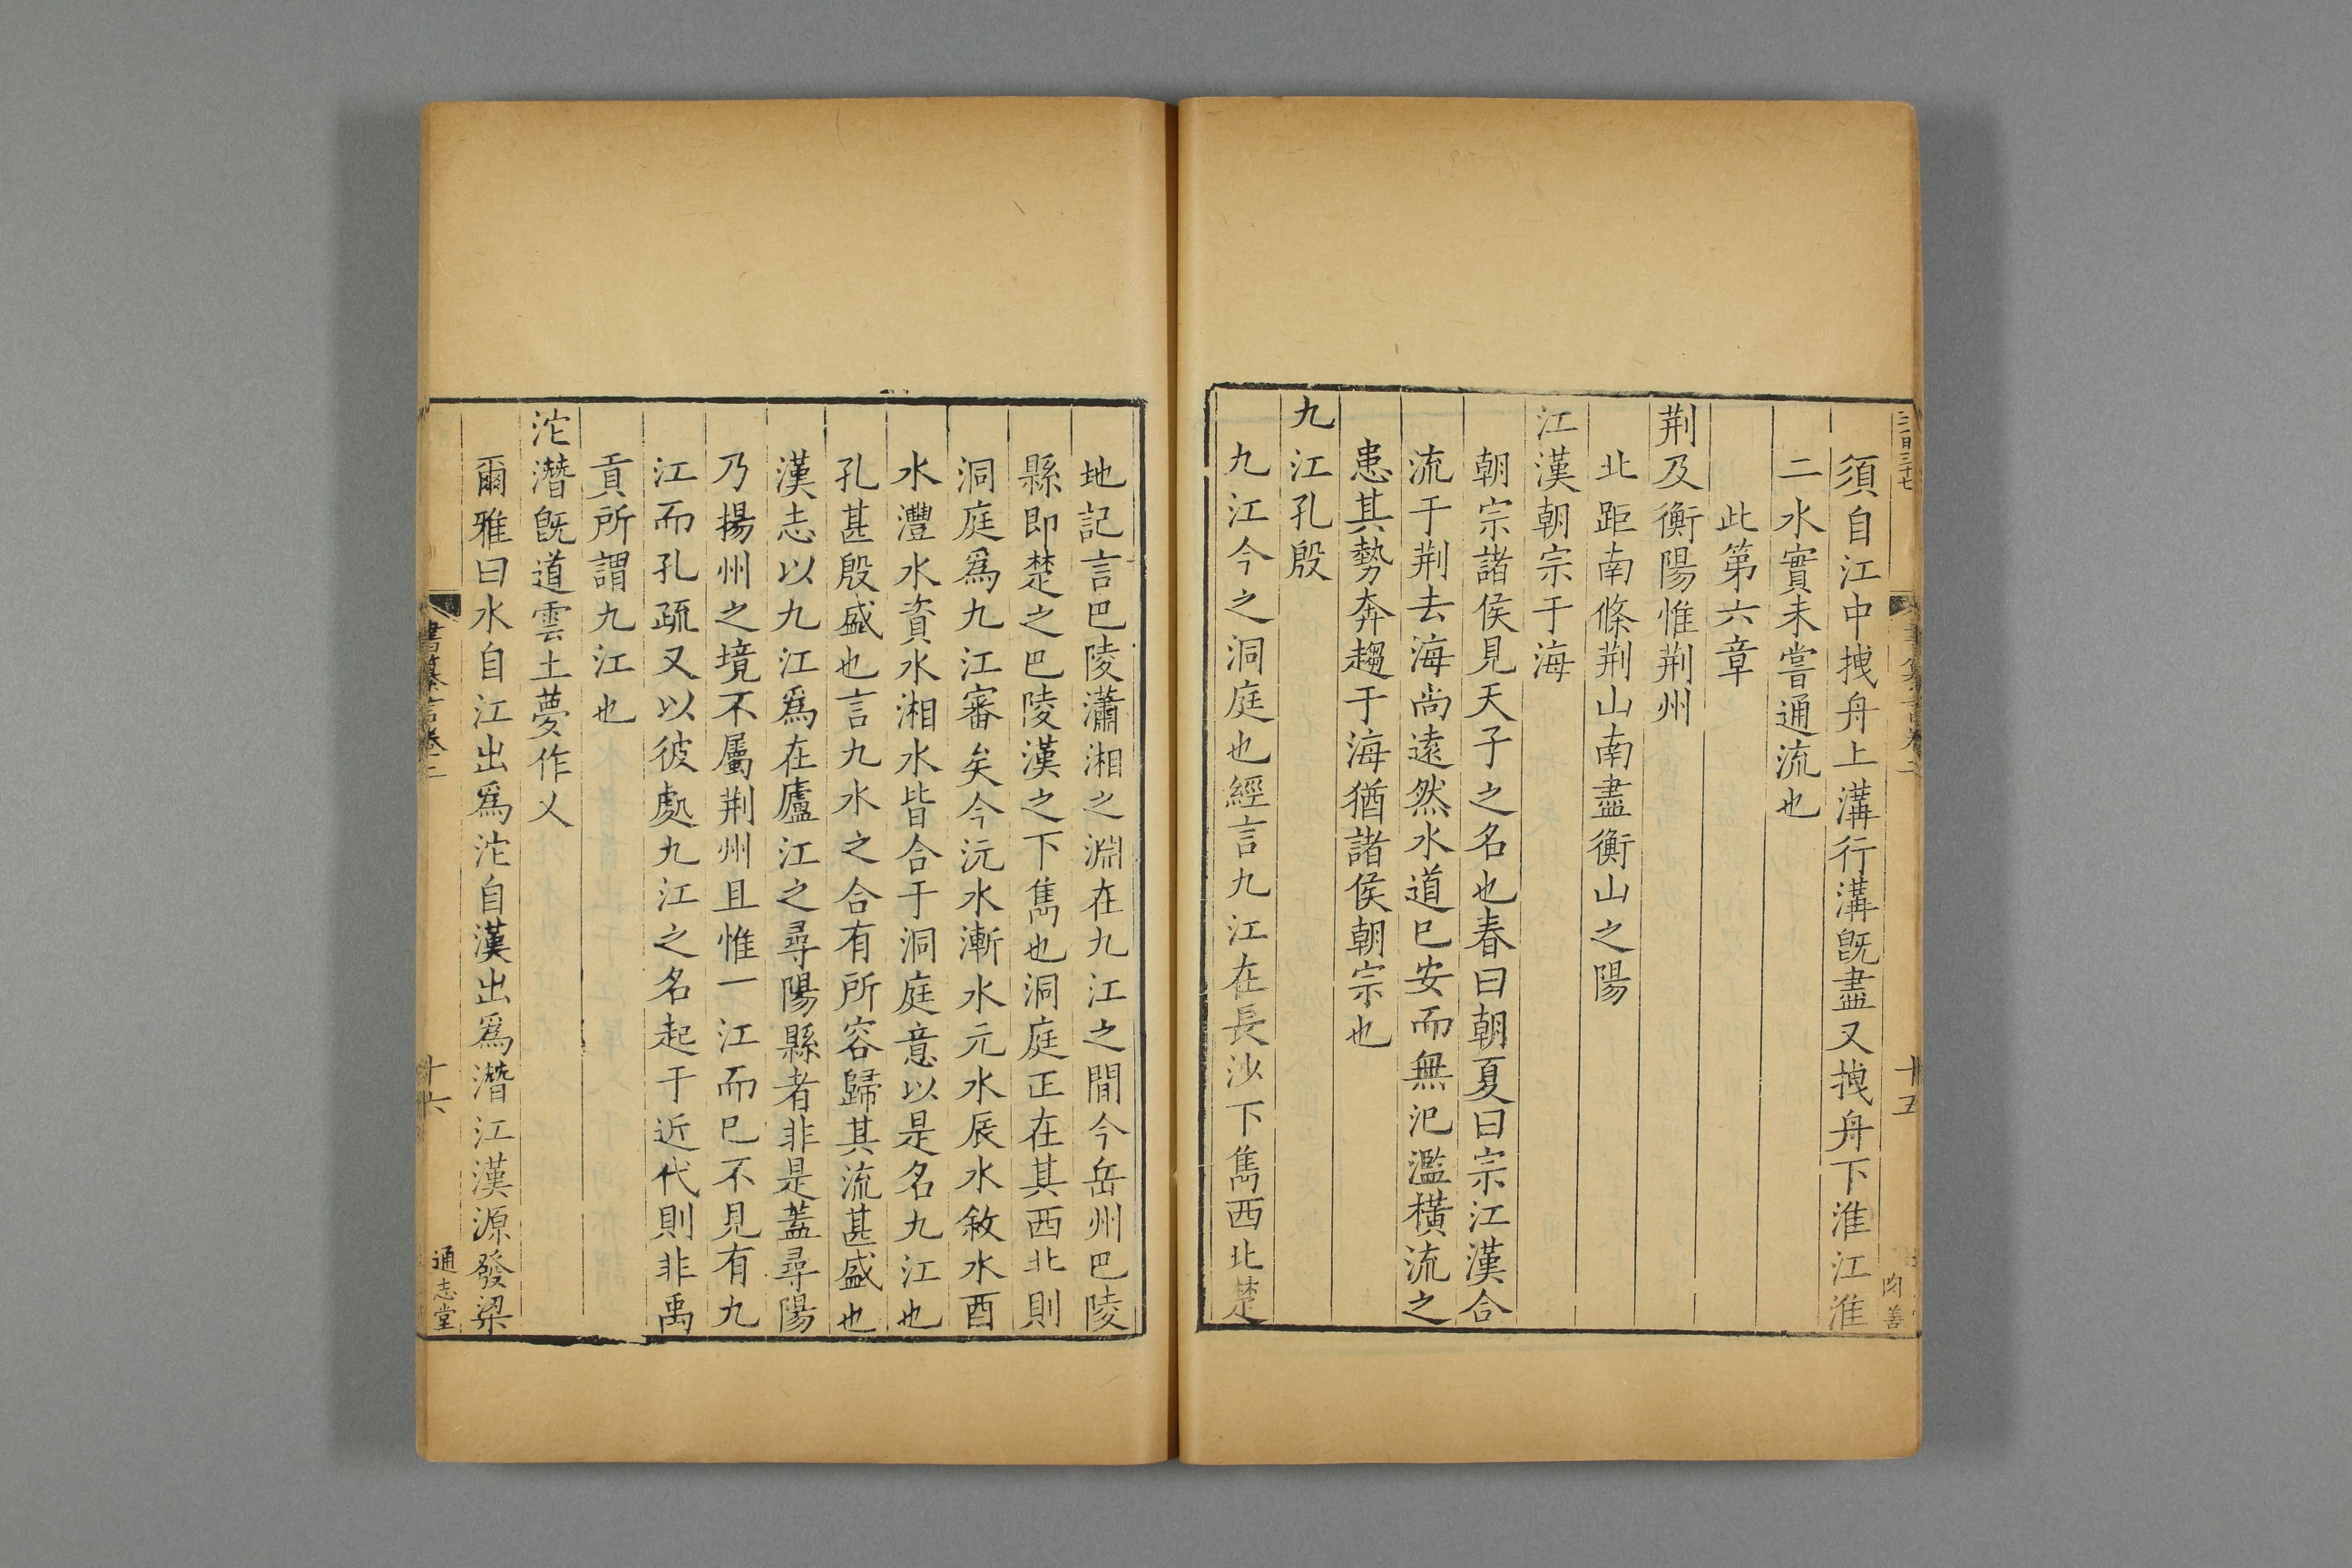 須自江中拽舟上溝行溝旣盡又拽舟下淮江淮
二水實未嘗通流也
此第六章
荆及衡陽惟荆州
北距南條荆山南盡衡山之陽
江漢朝宗于海
朝宗諸侯見天子之名也春曰朝夏曰宗江漢合
流于荆去海尚遠然水道已安而無氾濫橫流之
患其勢奔趨于海猶諸侯朝宗也
九江孔殷
九江今之洞庭也經言九江在長沙下雋西北楚
十五
地記言巴陵瀟湘之淵在九江之間今岳州巴陵
縣即楚之巴陵漢之下雋也洞庭正在其西北則
洞庭爲九江審矣今沅水漸水元水辰水敘水酉
水灃水資水湘水皆合于洞庭意以是名九江也
孔甚殷盛也言九水之合有所容歸其流甚盛也
漢志以九江爲在廬江之尋陽縣者非是蓋尋陽
乃揚州之境不屬荆州且惟一江而已不見有九
江而孔疏又以彼處九江之名起于近代則非禹
貢所謂九江也
沱潛旣道雲土夢作乂
爾雅曰水自江出爲沱自漢出爲潛江漢源發梁
書纂言卷二
十六
通志堂